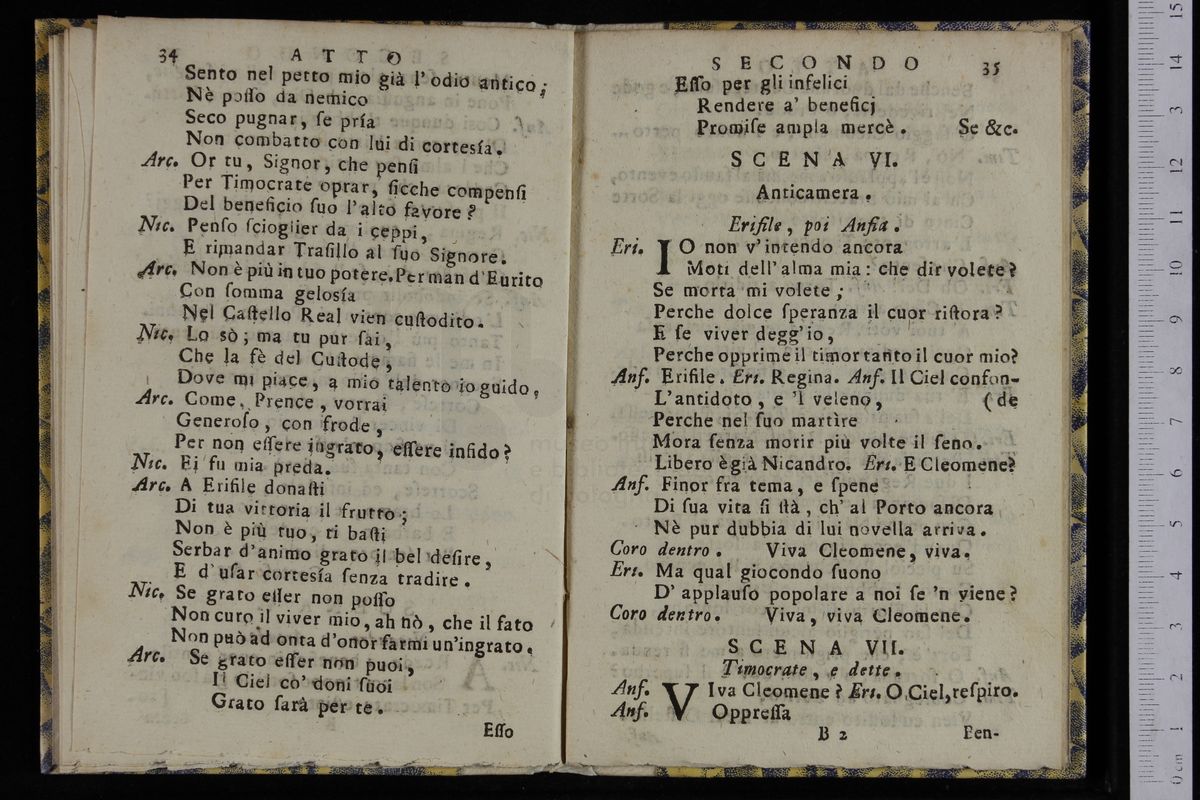 34 ATTO
Sento nel petto mio già l'odio antico;
Nè posso da nemico
Seco pugnar, se pría
Non combatto con lui di cortesía.
Arc. Or tu, Signor, che pensi
Per Timocrate oprar, sicche compensi
Del beneficio suo l'alto favore?
Nic. Penso scioglier da i ceppi,
E rimandar Trasillo al suo Signore.
Arc. Non è più in tuo potere. Per man d'Eurito
Con somma gelosía
Nel Castello Real vien custodito.
Nic. Lo sò; ma tu pur sai,
Che la fè del Custode,
Dove mi piace, a mio talento io guido,
Arc. Come, Prence, vorrai
Generoso, con frode,
Per non essere ingrato, essere infido?
Nic. Ei fu mia preda.
Arc. A Erifile donasti
Di tua vittoria il frutto;
Non è più tuo, ti basti
Serbar d'animo grato il bel desire,
E d'usar cortesía senza tradire.
Nic. Se grato esser non posso
Non curo il viver mio, ah nò, che il fato
Non può ad onta d'onor farmi un'ingrato.
Arc. Se grato esser non puoi,
Il Ciel co' doni suoi
Grato sarà per te.
Esso
SECONDO 35
Esso per gli infelici
Rendere a' beneficj
Promise ampla mercè. Se &c.
SCENA VI.
Anticamera.
Erifile, poi Anfia.
Eri. IO non v'intendo ancora
Moti dell'alma mia: che dir volete?
Se morta mi volete;
Perche dolce speranza il cuor ristora?
E se viver degg'io,
Perche opprime il timor tanto il cuor mio?
Anf. Erifile. Eri. Regina. Anf. Il Ciel confon-
L'antidoto, e 'l veleno, (de
Perche nel suo martìre
Mora senza morir più volte il seno.
Libero è già Nicandro. Eri. E Cleomene?
Anf. Finor fra tema, e spene
Di sua vita si stà, ch' al Porto ancora
Nè pur dubbia di lui novella arriva.
Coro dentro. Viva Cleomene, viva.
Eri. Ma qual giocondo suono
D' applauso popolare a noi se 'n viene?
Coro dentro. Viva, viva Cleomene.
SCENA VII.
Timocrate, e dette.
Anf. VIva Cleomene? Eri. O Ciel, respiro.
Anf. Oppressa
B 2 Pen-